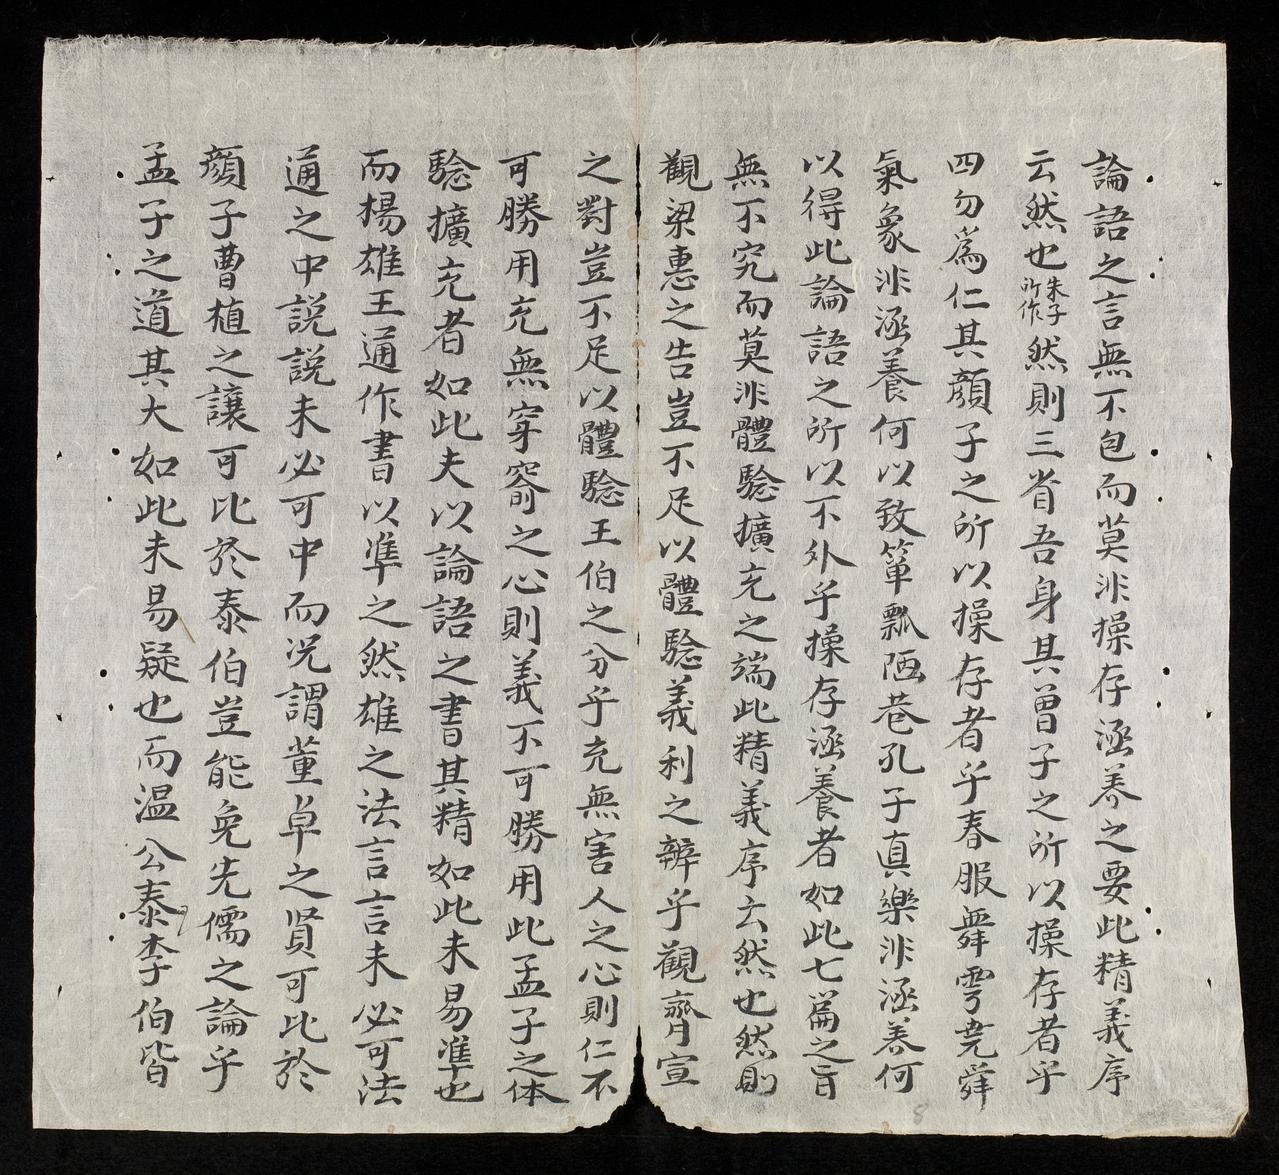 論語之言無不包而莫非操存涵养之要此精義序
云然也朱子所作然則三省吾身其曾子之所以操存者乎
四勿為仁其顏子之所以操存者乎春服舞雩尭舜
氣象非涵養何以致簞瓢陋巷孔子真樂非涵养何
以得此論語之所以不外乎操存涵養者如此七篇之旨
無不究而莫非體騐擴充之端此精義序云然也然則
觀梁惠之告豈不足以體騐義利之辨乎觀齊宣
之對豈不足以體騐王伯之分乎充無害人之心則仁不
可勝用充無穿窬之心則義不可勝用此孟子之体
騐擴充者如此夫以論語之書其精如此未易準也
而楊雄王通作書以準之然雄之法言言未必可法
通之中説説未必可中而况謂董卓之賢可比於
顏子曹植之讓可比於泰伯豈能免先儒之論乎
孟子之道其大如此未易疑也而温公泰李伯皆
8